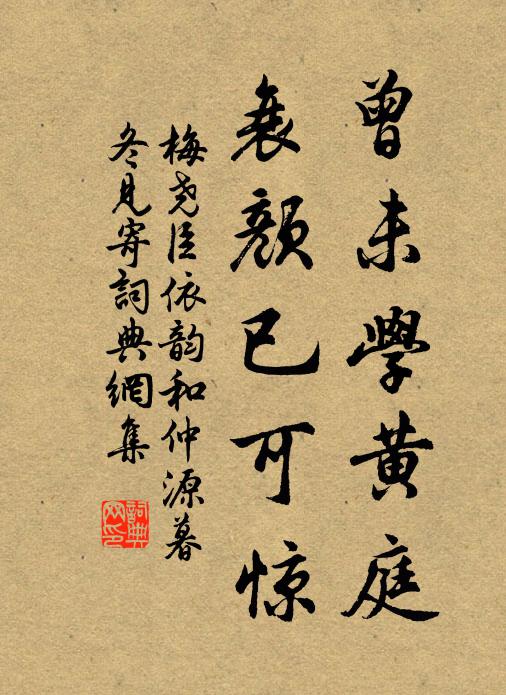 曾未學黄庭
衰颜已可惊
梅尧臣依韵和仲源暮
冬見寄詞典網集
詞典
网印